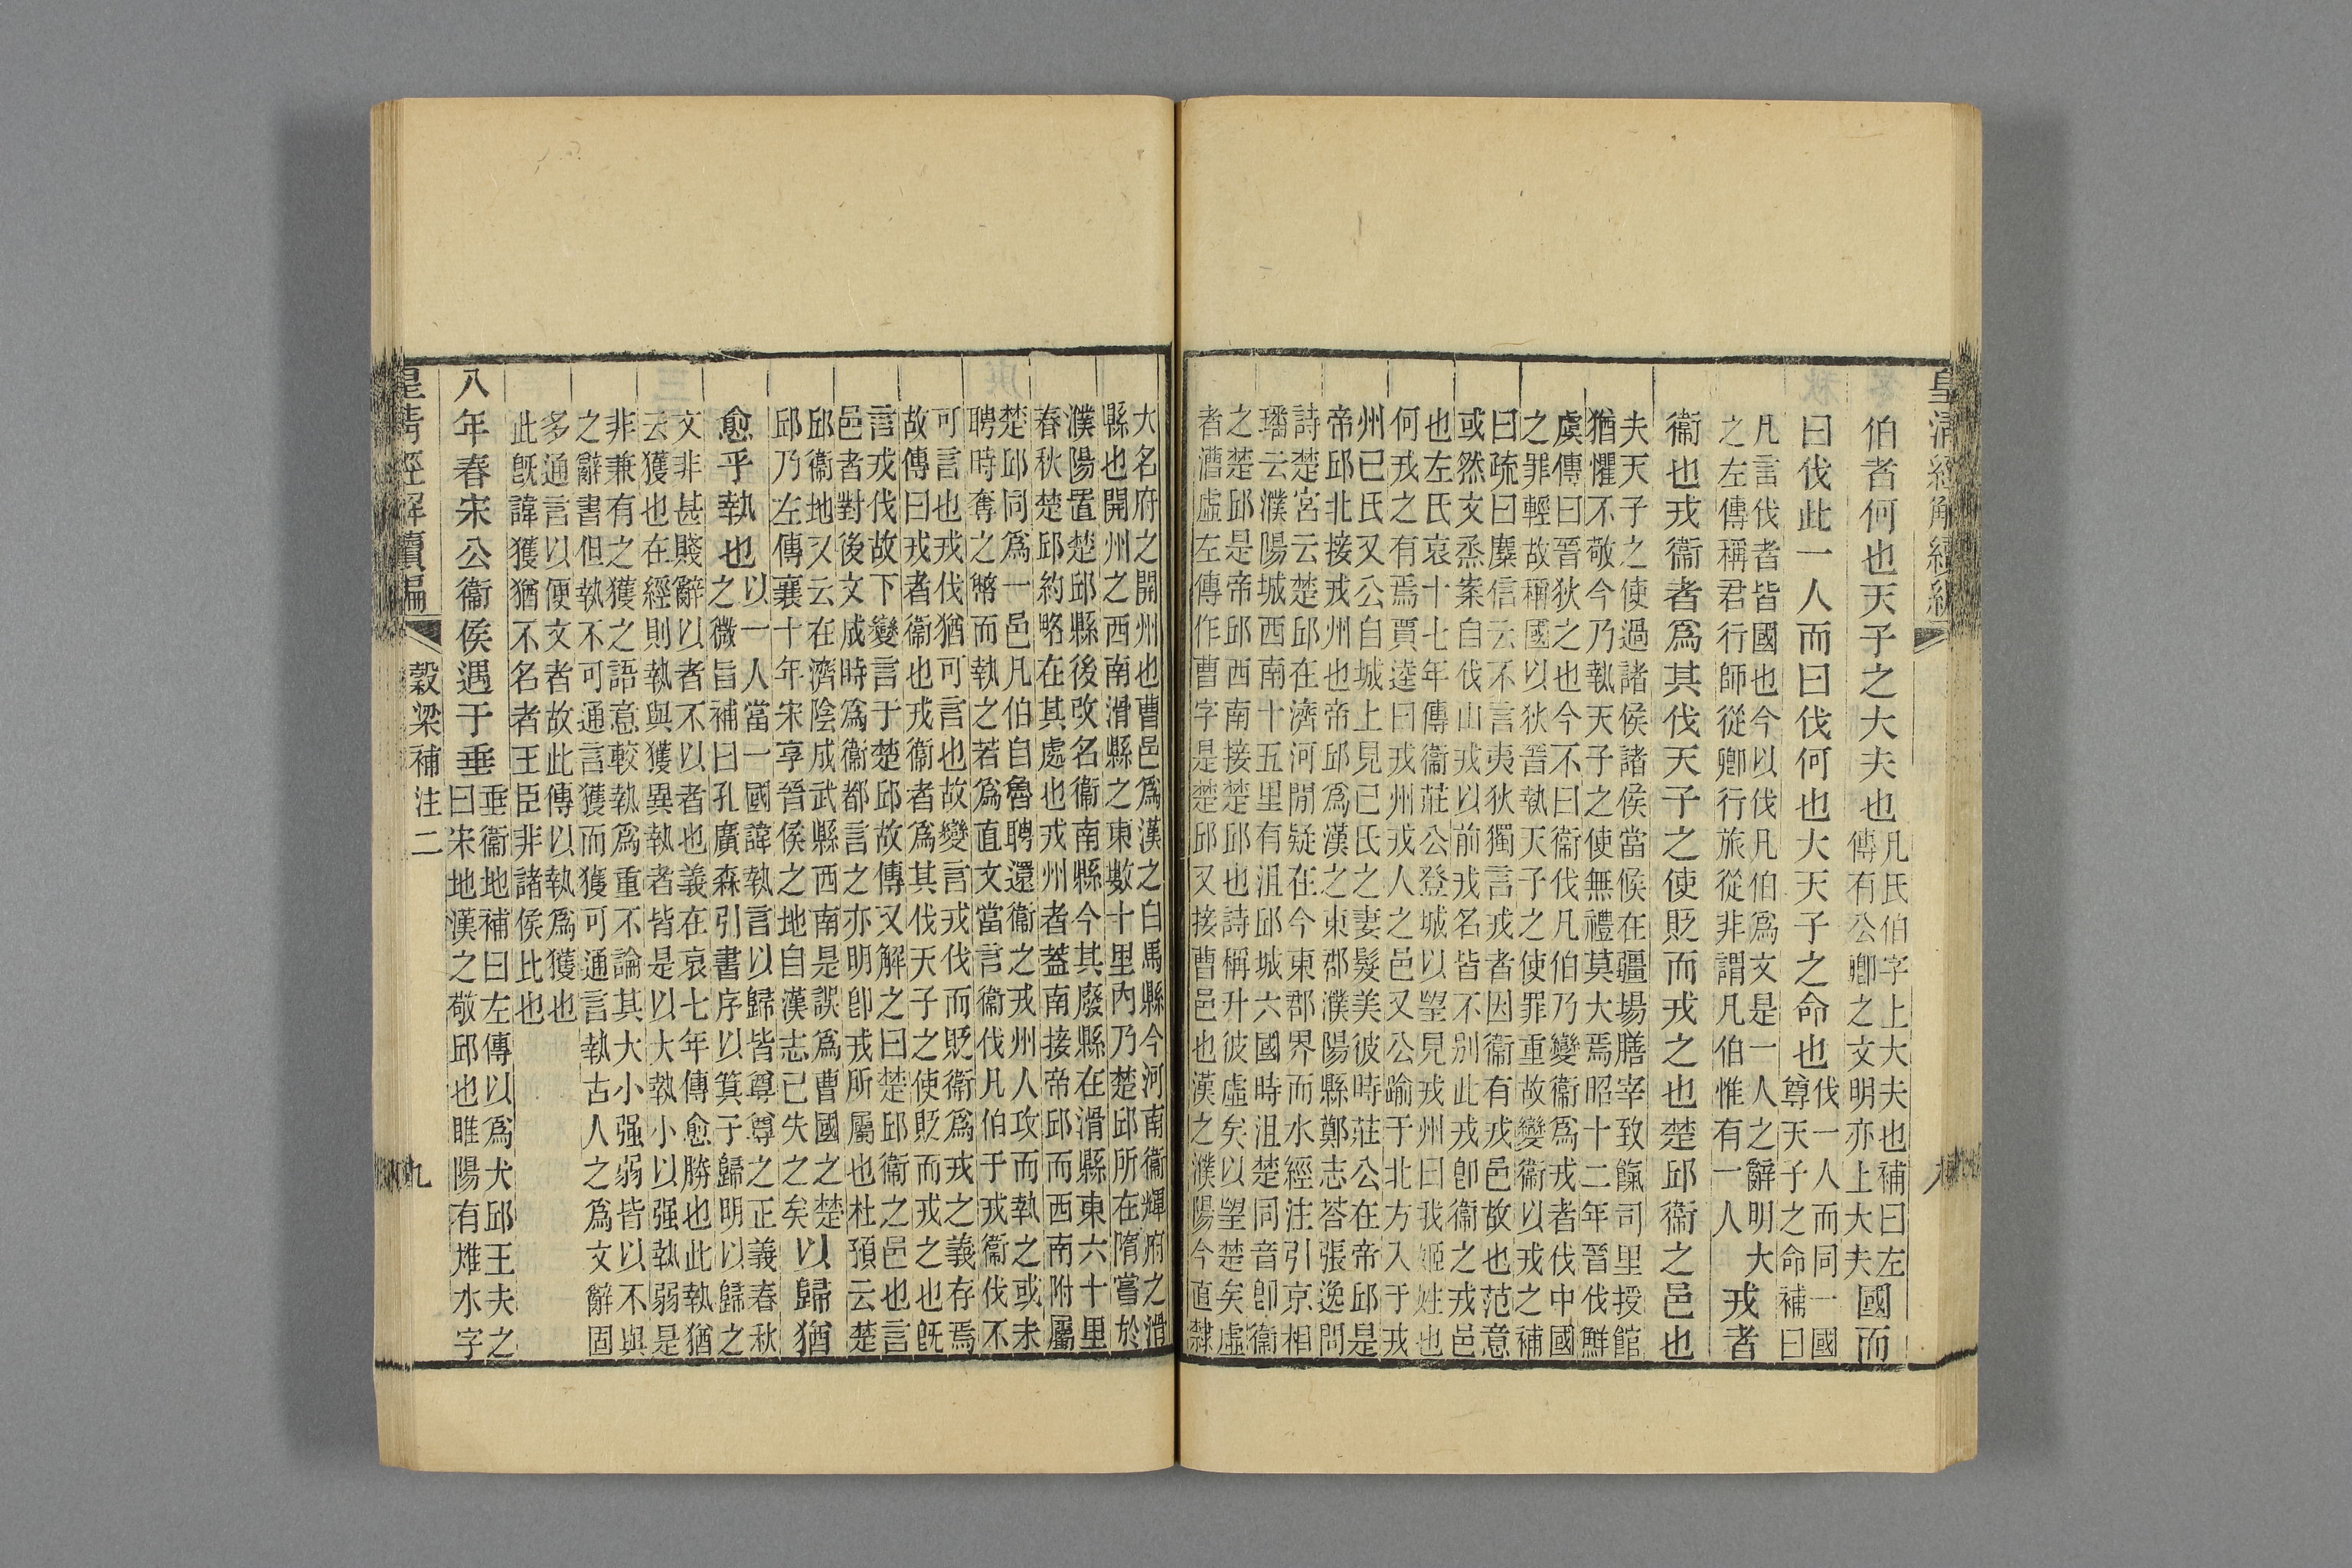 皇清經解續編
八
伯者何也天子之大夫也
凡氏伯字上大夫也補曰左
傳有公卿之文明亦上大夫
國而
曰伐此一人而曰伐何也大天子之命也
伐一人而同一國
尊天子之命補曰
凡言伐者皆國也今以伐凡伯爲文是一人之辭明大
之左傳稱君行師從卿行旅從非謂凡伯惟有一人
戎者
衞也戎衞者爲其伐天子之使貶而戎之也楚邱衞之邑也
夫天子之使過諸侯諸侯當候在疆場膳宰致餼司里授館
猶懼不敬今乃執天子之使無禮莫大焉昭十二年晉伐鮮
虞傳曰晉狄之也今不曰衞伐凡伯乃變衞爲戎者伐中國
之罪輕故稱國以狄晉執天子之使罪重故變衞以戎之補
曰疏曰麋信云不言夷狄獨言戎者因衞有戎邑故也范意
或然文烝案自伐山戎以前戎名皆不别此戎卽衞之戎邑
也左氏哀十七年傳衞莊公登城以望見戎州曰我姬姓也
何戎之有焉賈逵曰戎州戎人之邑又公踰于北方入于戎
州已氏又公自城上見已氏之妻髮美彼時莊公在帝邱是
帝邱北接戎州也帝邱爲漢之東郡濮陽縣鄭志荅張逸問
詩楚宮云楚邱在濟河閒疑在今東郡界而水經注引京相
璠云濮陽城西南十五里有沮邱城六國時沮楚同音卽衞
之楚邱是帝邱西南接楚邱也詩稱升彼虛矣以望楚矣虛
者漕虛左傳作曹字是楚邱又接曹邑也漢之濮陽今直隸
大名府之開州也曹邑爲漢之白馬縣今河南衞輝府之滑
縣也開州之西南滑縣之東數十里內乃楚邱所在隋嘗於
濮陽置楚邱縣後改名衞南縣今其廢縣在滑縣東六十里
春秋楚邱約略在其處也戎州者蓋南接帝邱而西南附屬
楚邱同爲一邑凡伯自魯聘還衞之戎州人攻而執之或未
聘時奪之幣而執之若爲直文當言衞伐凡伯于戎衞伐不
可言也戎伐猶可言也故變言戎伐而貶衞爲戎之義存焉
故傳曰戎者衞也戎衞者爲其伐天子之使貶而戎之也旣
言戎伐故下變言于楚邱故傳又解之曰楚邱衞之邑也言
邑者對後文咸時爲衞都言之亦明卽戎所屬也杜預云楚
邱衞地又云在濟陰成武縣西南是誤爲曹國之楚
邱乃左傳襄十年宋享晉侯之地自漢志已失之矣
以歸猶
愈乎執也
以一人當一國諱執言以歸皆尊尊之正義春秋
之微旨補曰孔廣森引書序以箕子歸明以歸之
文非甚賤辭以者不以者也義在哀七年傳愈勝也此執猶
云獲也在經則執與獲異執者皆是以大執小以强執弱是
非兼有之獲之語意較執爲重不論其大小强弱皆以不與
之辭書但執不可通言獲而獲可通言執古人之爲文辭固
多通言以便文者故此傳以執爲獲也
此旣諱獲猶不名者王臣非諸侯比也
八年春宋公衞侯遇于垂
垂衞地補曰左傳以爲犬邱王夫之
曰宋地漢之敬邱也睢陽有雎水字
皇清經解續編
穀梁補注二
九